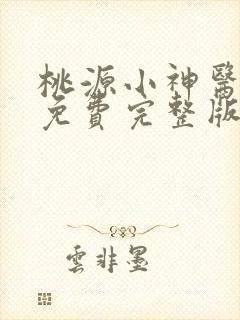 桃源小神醫
免費完整版
雲非墨